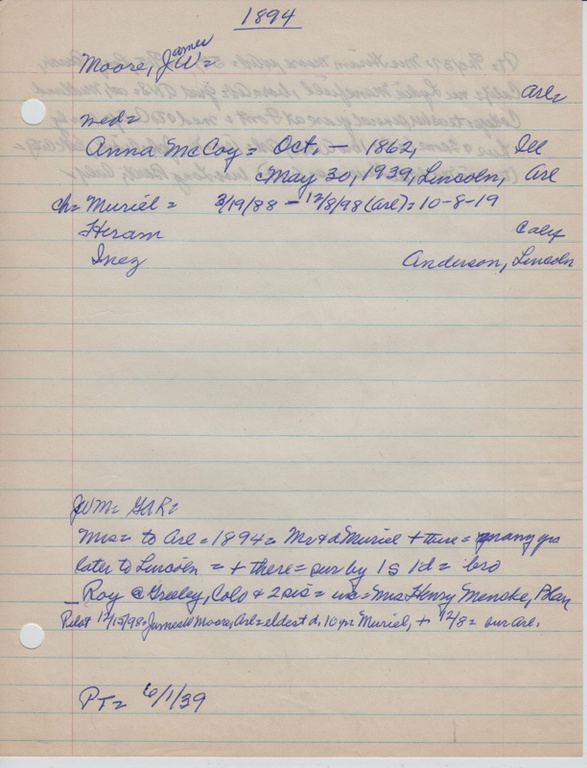 1894
Moore, James W =
Arl =
md =
Anna McCoy = Oct, - 1862, Ill
May 30, 1939, Lincoln, Arl
ch = Muriel = 3/19/88 - 12/8/98 (Arl) = 10-8-19
Hiram Calif
Inez Anderson, Lincoln
JWM = GAR =
Mrs = to Arl = 1894 = Mr & d Muriel + there = many yrs
later to Lincoln = + there = sur by 1s 1d = bro
Roy @ Greeley, Colo & 2 sis = Mrs Henry Menske, Blair
Pilot 12/15/98 = James W Moore, Arl = eldest d. 10 yr Muriel, + 12/8 = sur Arl.
PT = 6/1/39